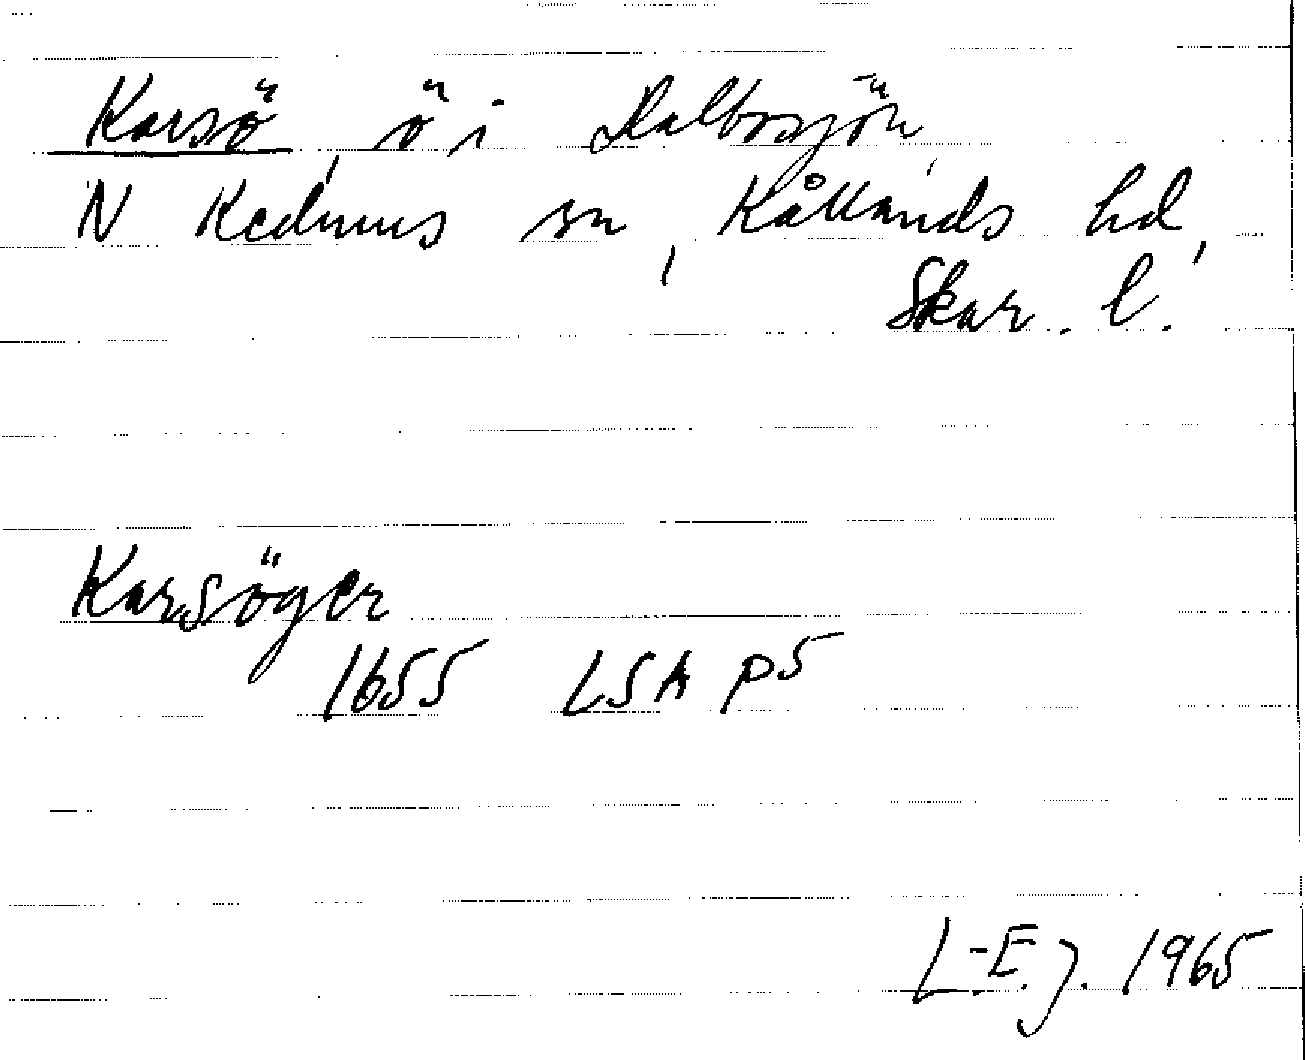 Karsö, ö i Dalbosjön,
N Kedums sn, Kållands hd,
Skar. l.
Karsöger
1655 LSA p5
L.-E. J. 1965